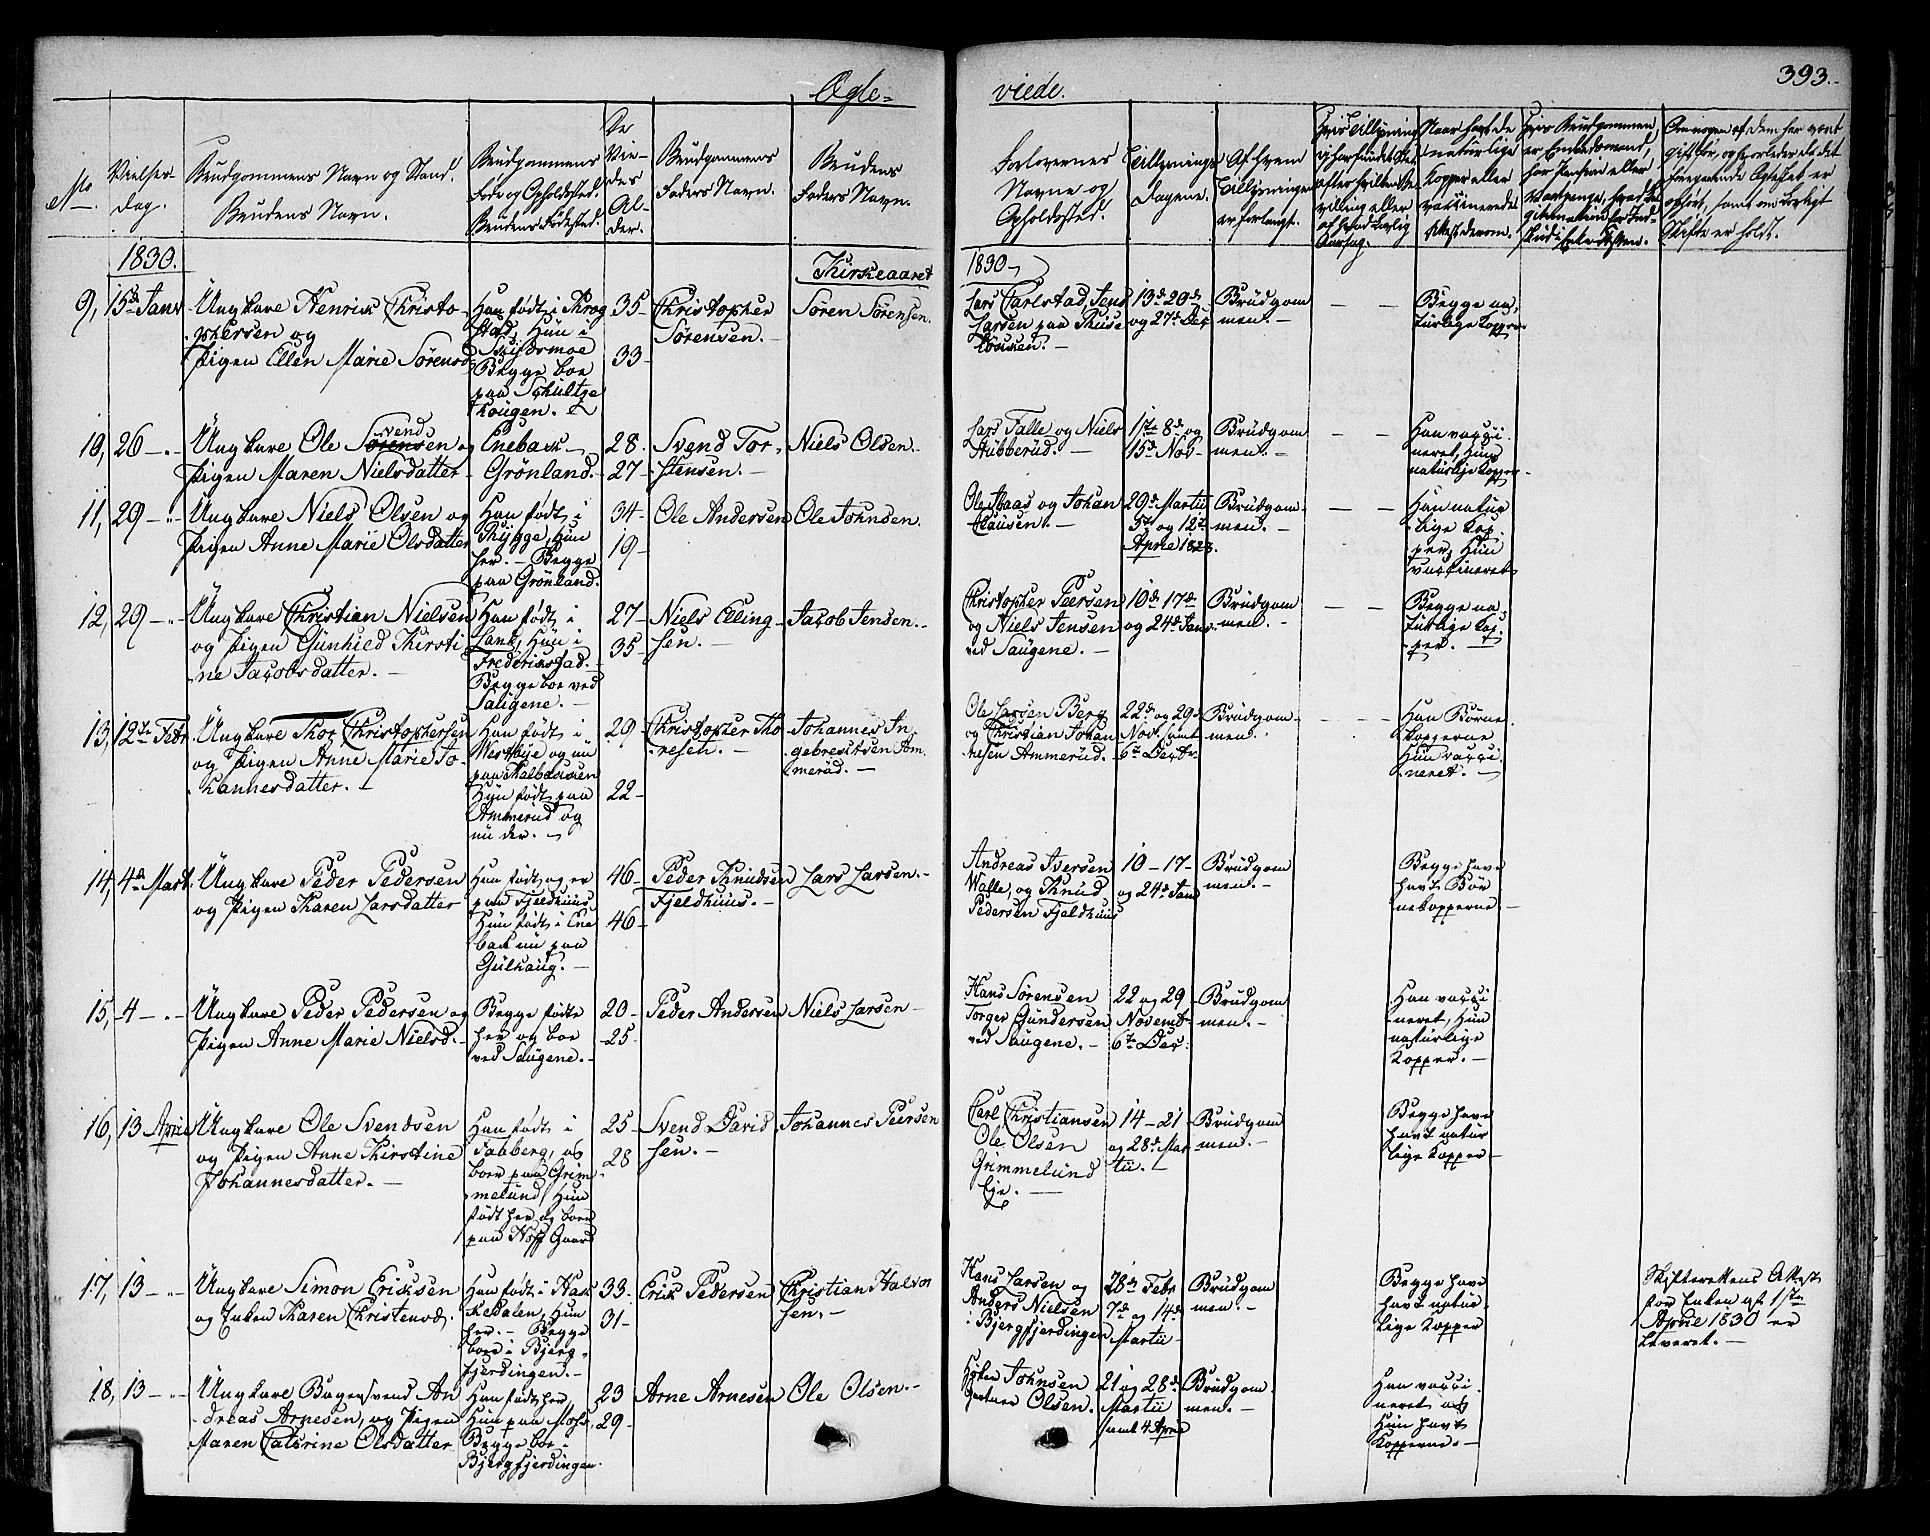 Ægte=
viede.
393.
No
Vielses-
dag.
Brudgommens Navn og Stand.
Brudens Navn.
Brudgommens
Føde og Opholdssted.
Brudens Fødested.
De
Vie-
des
Al-
der.
Brudgommens
Faders Navn.
Brudens
Faders Navn.
Forlovernes
Navne og
Opholdssted.
Tillysnings
Dagene.
Af hvem
Tillysningen
er forlangt.
1830.
Kirkeaaret
1830
9, 15de Janv
Ungkarl Henrich Christo-
phersen og
Pigen Ellen Marie Sørensd
Han født i Krog
stad, Hun i
Begge boe
paa Schultze
Hougen.
35
33
Christopher
Sørensen.
Søren Sørensen.
Lars Carlstad, Jens
Larsen paa Ruse
løkken.
13de 20de
og 27de Dec
Brudgom
men.
Begge na
turlige Kopper
10, 26
Ungkarl Ole Svendsen og
Pigen Maren Nielsdatter
Enebak
Grønland.
28.
27
Svend Tor-
stensen.
Niels Olsen.
Lars Falle og Niels
Hubberud.
1ste 8de og
15de Nov
Brudgom
men.
Han vacci
neret, Hun
naturlige Kopper
11, 29
Ungkarl Niels Olsen og
Pigen Anne Marie Olsdatter
Han født i
Rygge, Hun
her. Begge
paa Grønland.
34
19
Ole Andersen
Ole Johnsen.
Ole Aaas og Johan
Clausen.
29de Martii
5te og 12te
April 1828.
Brudgom
men.
Han natur
lige Kop
per, Hun
vaccineret
12, 29
Ungkarl Christian Nielsen
og Pigen Gunhild Kirsti
ne Jacobsdatter.
Han født i
Land, Hun i
Frederikstad.
Begge boe ved
Saugene.
27
35
Niels Elling-
sen.
Jacob Jensen.
Christopher Peersen
og Niels Jensen
ved Saugene.
10de 17de
og 24de Janv
Brudgom
men.
Begge na
turlige Kop
per.
13, 12te Febr
Ungkarl Thor Christophersen
og Pigen Anne Marie Jo-
hannesdatter.
Han født i
Westbye og nu
paa Kalbakken
Hun født paa
Ammerud og
nu der.
29
22
Christopher Tho
resen.
Johannes In
gebregtsen Am
merud.
Ole Larsen Berg
og Christian Johan
nesen Ammerud.
22de og 29de
Nov. samt
6te Decbr
Brudgom
men.
Han Børne
kopperne
Hun vacci
neret.
14, 4de Mart.
Ungkarl Peder Pedersen
og Pigen Karen Larsdatter
Han født og er
paa Fjeldhuus,
Hun født i Ene
bak nu paa
Gulhaug.
46
46
Peder Knudsen
Fjeldhuus.
Lars Larsen.
Andreas Iversen
Walle, og Knud
Pedersen Fjeldhuus
10 - 17
og 24de Janv
Brudgom
men.
Begge have
havt Bør
nekopperne
15, 4
Ungkarl Peder Pedersen og
Pigen Anne Marie Nielsd.
Begge fødte
her og boe
ved Saugene.
20
25
Peder Andersen
Niels Larsen
Hans Sørensen
Torger Gundersen
ved Saugene.
22 og 29
Novemb
6te Dec:
Brudgom
men.
Han vacci
neret, Hun
naturlige
Kopper.
16, 13 April
Ungkarl Ole Svendsen
og Pigen Anne Kirstine
Johannesdatter.
Han født i
Faaberg, og
boer paa Grim
melund, Hun
født her og boer
paa Hoff Gaard
25
28
Svend David
sen.
Johannes Peersen
Carl Christiansen
Ole Olsen
Grimmelund
Eje.
14 - 21
og 28de Mar
tii.
Brudgom
men.
Begge have
havt natur
lige Kopper
17, 13
Ungkarl Simon Ericksen
og Enken Karen Christensd.
Han født i Hak
kedalen, Hun
her. Begge
boe i Bjerg-
fjerdingen.
33.
31
Erick Pedersen
Christian Halvor
sen.
Hans Larsen og
Anders Nielsen
i Bjergfjerdingen
28de Febr
7de og 14de
Martii
Brudgom
men.
Begge have
havt natur
lige Kopper
Skifterettens Attest
for Enken af 1ste
April 1830 er
leveret.
18, 13
Ungkarl Bagersvend An
dreas Arnesen, og Pigen
Maren Cathrine Olsdatter
Han født her,
Hun paa Moss
Begge boe i
Bjergfjerdingen.
23
29
Arne Arnesen
Ole Olsen.
Johnsen
Olsen.
21 og 28de
Martii
samt 4 April
Brudgom
men.
Han vacci
neret og
Hun havt
Kopperne.